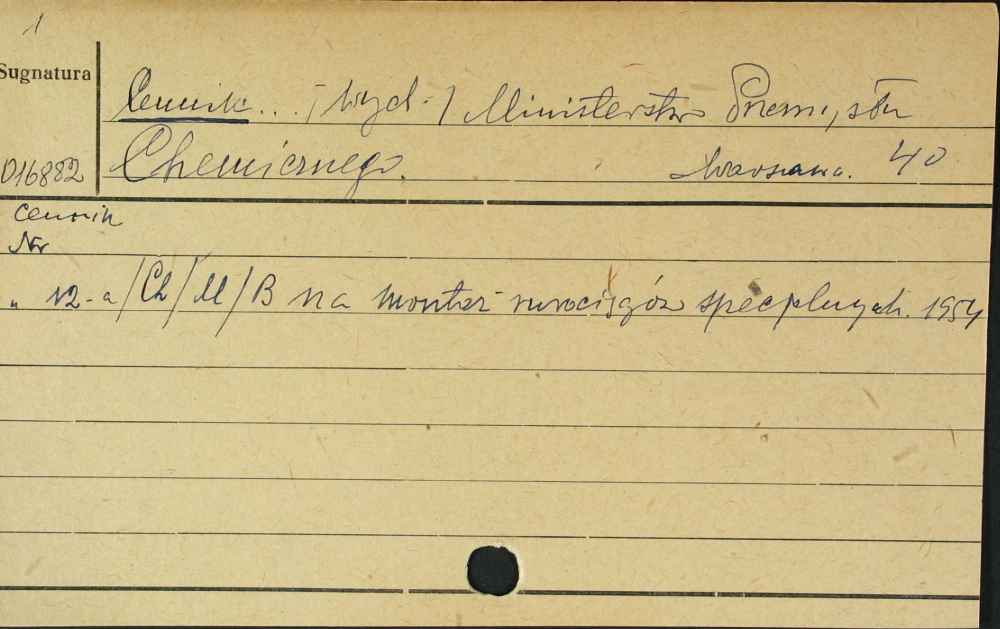 1
Sugnatura
Cennik .. /wyd./ Ministerstwo Przemysłu
D16882 Chemicznego. Warszawa. 40
Cennik
Nr
" 12-a/Ch/M/B na montaż rurociągów specjalnych. 1954